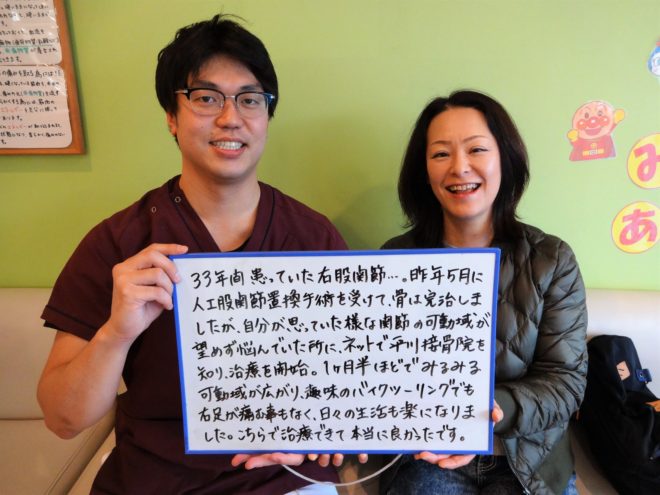 33年間患っていた右股関節…。昨年5月に
人工股関節置換手術を受けて、骨は完治しま
したが、自分が思っていた様な関節の可動域が
望めず悩んでいた所に、ネットで平川接骨院を
知り、治療を開始。1ヶ月半ほどでみるみる
可動域が広がり、趣味のバイクツーリングでも
右足が痛む事もなく、日々の生活も楽になりま
した。こちらで治療できて本当に良かったです。
み
あ